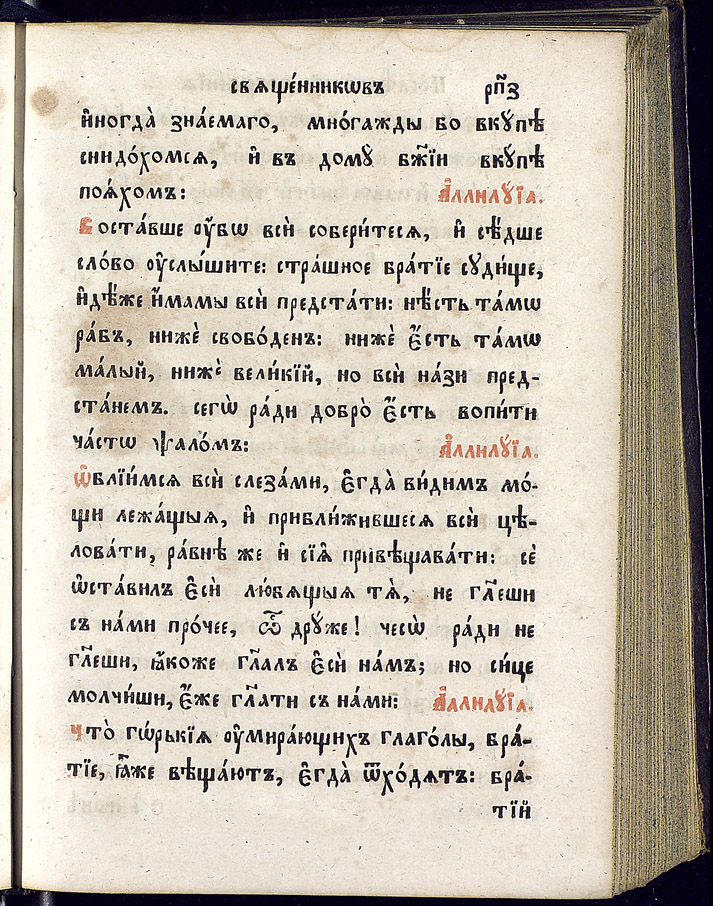 свѧще́нникѡвъ рп҃з
и҆ногда̀ зна́емаго, мно́гажды бо вкꙋ́пѣ
снидо́хомсѧ, и҆ въ домꙋ̀ бж҃їи вкꙋ́пѣ
поѧ́хомъ: А҆ллилꙋ́їа.
Воста́вше ᲂу҆̀бѡ всѝ собери́тесѧ, и҆ сѣ́дше
сло́во ᲂу҆слы́шите: стра́шное бра́тїе сꙋди́ще,
и҆дѣ́же и҆́мамы всѝ предста́ти: нѣ́сть та́мѡ
ра́бъ, нижѐ свобо́денъ: нижѐ є҆́сть та́мѡ
ма́лый, нижѐ вели́кїй, но всѝ на́зи пред-
ста́немъ. сегѡ̀ ра́ди добро̀ є҆́сть вопи́ти
ча́стѡ ѱало́мъ: А҆ллилꙋ́їа.
Ѡ҆блїи́мсѧ всѝ слеза́ми, є҆гда̀ ви́димъ мо́-
щи лежа́щыѧ, и҆ прибли́жившесѧ всѝ цѣ-
лова́ти, ра́внѣ же и҆ сїѧ̑ привѣщава́ти: сѐ
ѡ҆ста́вилъ є҆сѝ лю́бѧщыѧ тѧ̀, не гл҃еши
съ на́ми про́чее, ѽ дрꙋ́же! чесѡ̀ ра́ди не
гл҃еши, ꙗ҆́коже гл҃алъ є҆сѝ на́мъ; но си́це
молчи́ши, є҆́же гл҃ати съ на́ми: А҆ллилꙋ́їа.
Что̀ гѡ́рькїѧ ᲂу҆мира́ющихъ глаго́лы, бра́-
тїе, ꙗ҆̀же вѣща́ютъ, є҆гда̀ ѿхо́дѧтъ: бра́-
тїй